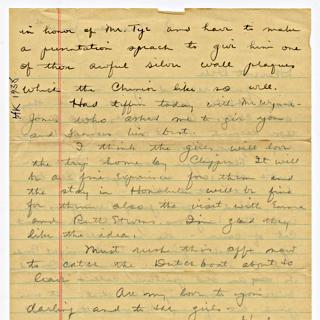 in honor of Mr. Tye and have to make
a presentation speach to give him one
of those awful silver wall plaques
which the Chinese like so well.
Had tiffin today with Mr. Wynne-
Jones who asked me to give you
and Frances his best.
I think the girls will love
the trip home by Clipper. It will
be a fine experience for them and
the stay in Honolulu will be fine
for them also the visit with Emma
and Bett Stevens. I'm glad they
like the idea.
Must rush this off now
to catch the Dutch boat about to
leave
All my love to you
darling and to the girls
HK 1938